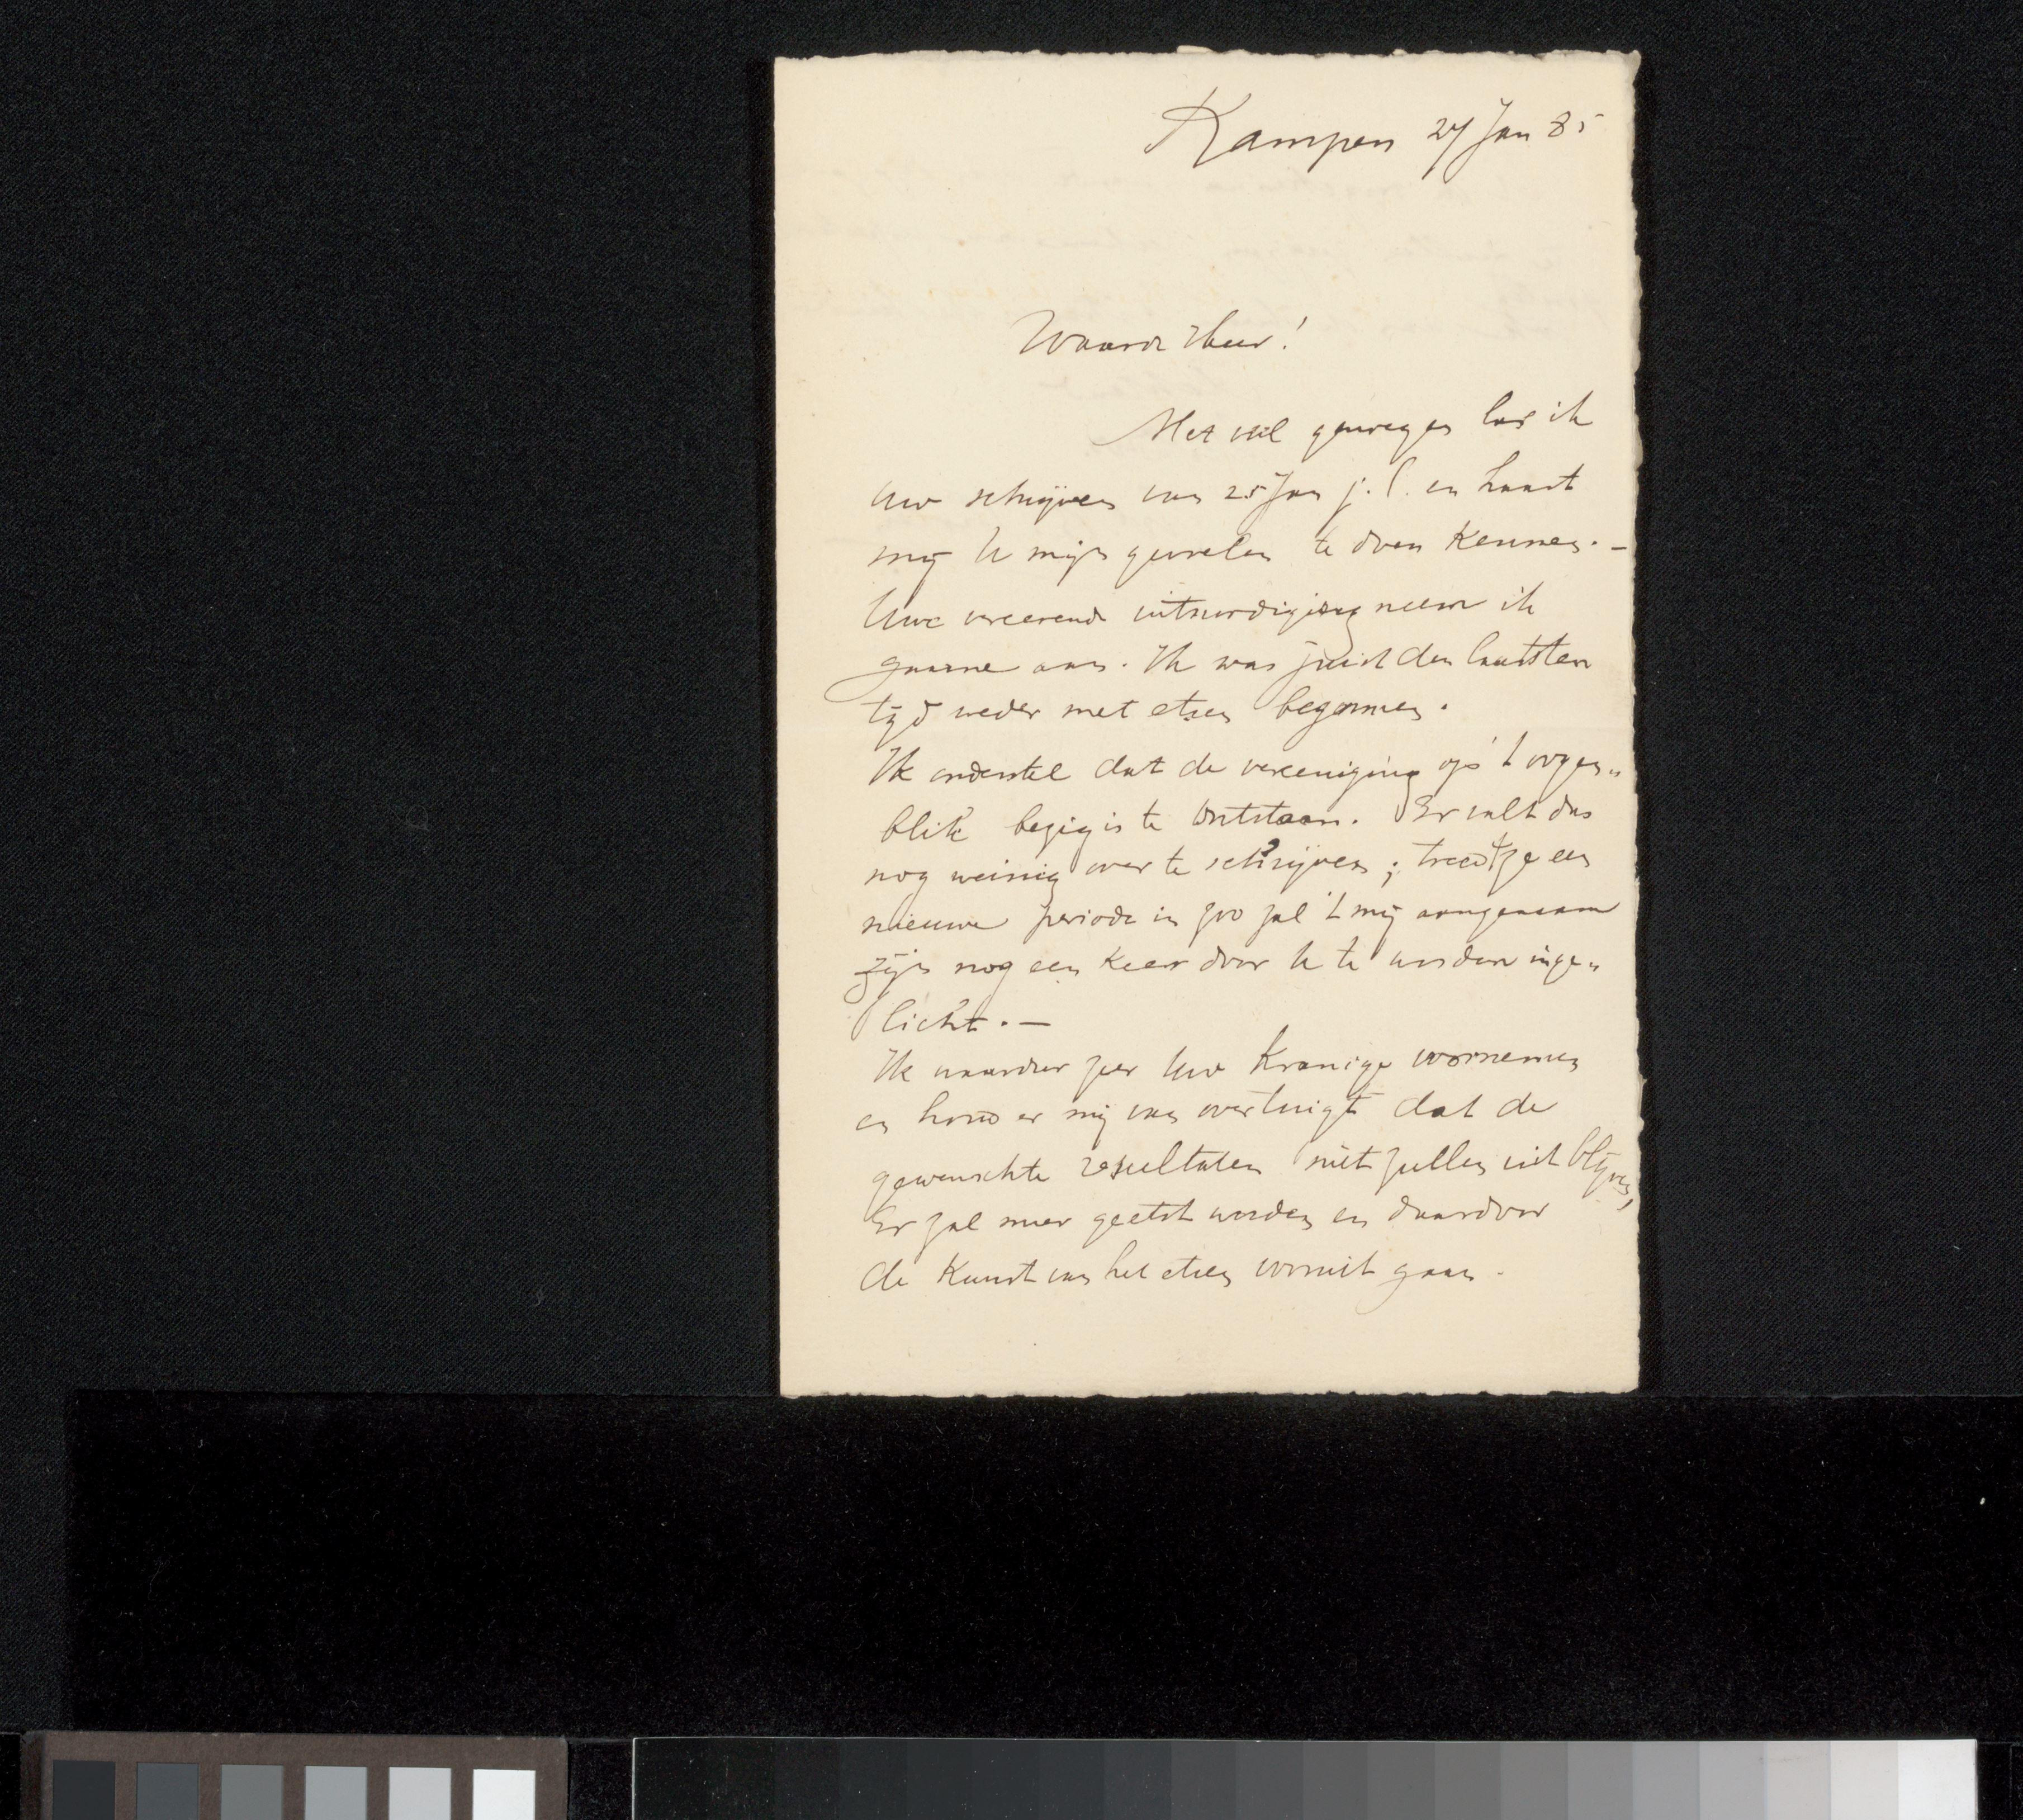 Kampen 27 Jan 85
Waarde Heer!
Met veel genoegen las ik
Uw schrijven van 25 Jan j.l. en haast
mij U mijn gevoelen te doen kennen. –
Uwe vereerende uitnoodiging neem ik
gaarne aan. Ik was juist den laatsten
tijd weder met etsen begonnen.
Ik onderstel dat de vereeniging op 't oogen„
blik bezig is te ontstaan. Er valt dus
nog weinig over te schrijven; treedt ze een
nieuwe periode in zoo zal 't mij aangenaam
zijn nog een keer door U te worden inge„
licht. –
Ik waardeer zeer Uw kranige voornemen
en houd er mij van overtuigt dat de
gewenschte resultaten niet zullen uit blijven,
Er zal meer geëtst worden en daardoor
de Kunst van het etsen vooruit gaan.